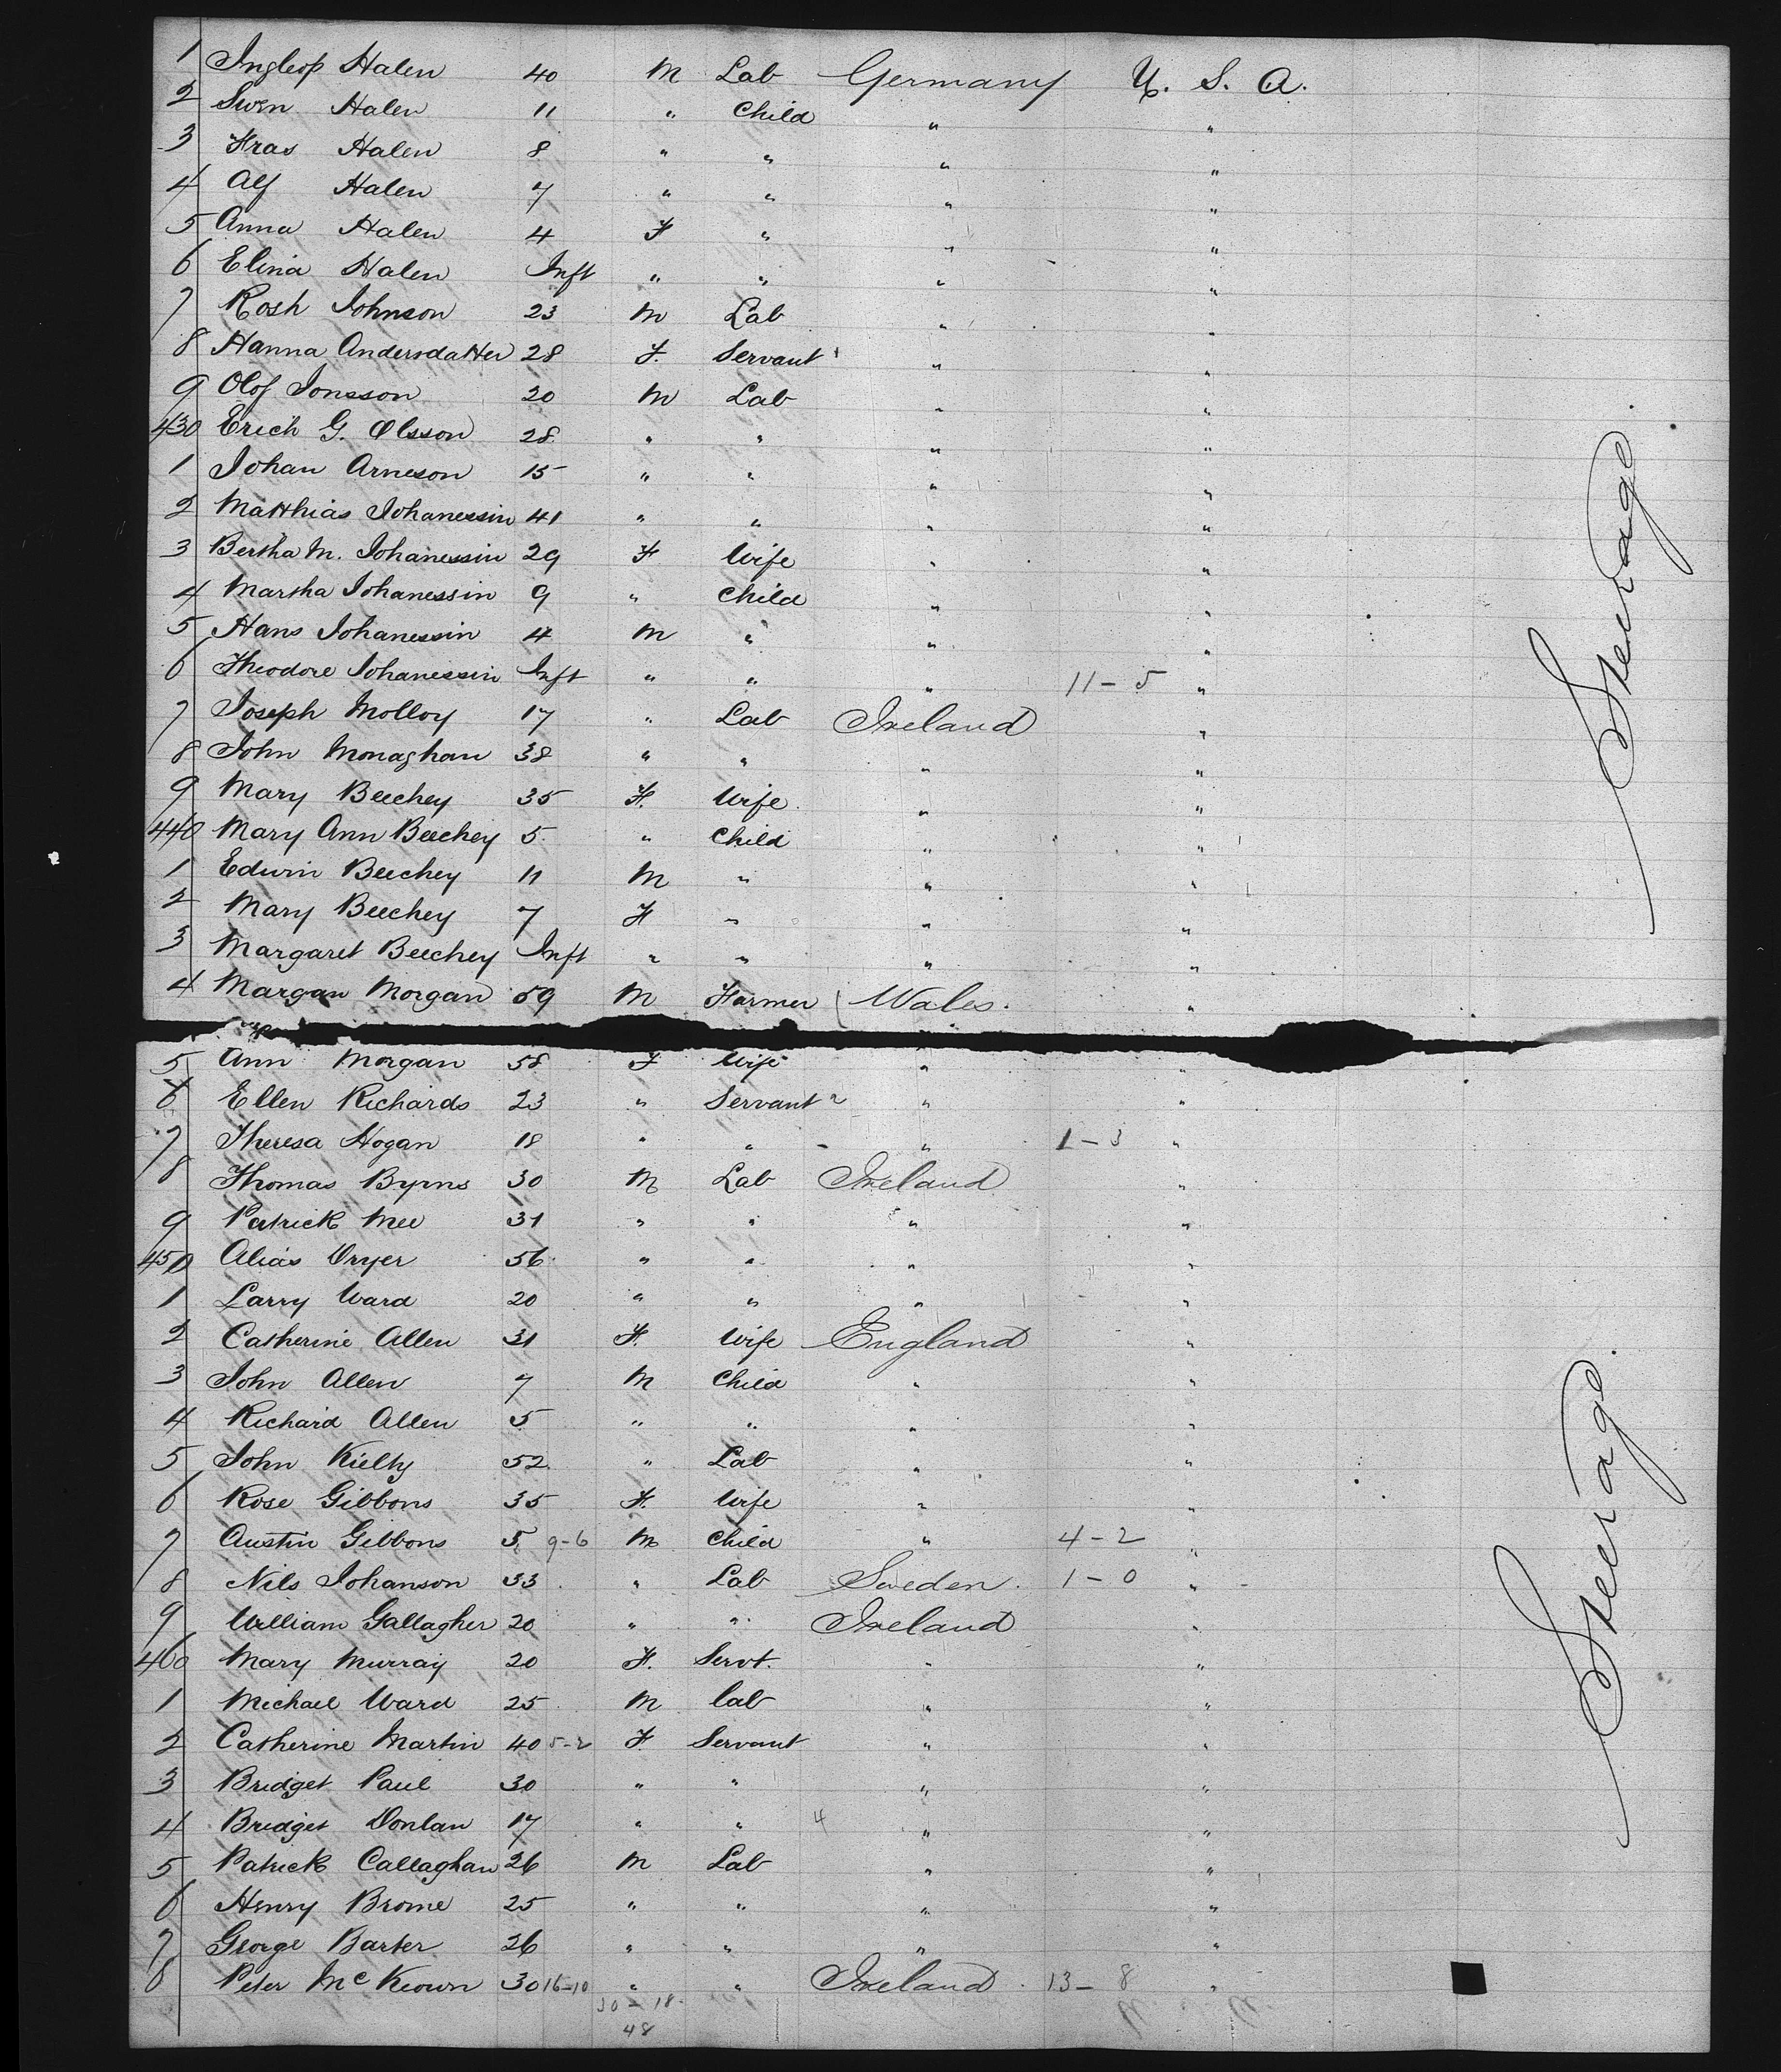 1 Ingleop Halen 40 M Lab Germany U. S. A.
2 Swen Halen 11 " Child " "
3 Hras Halen 8 " " " "
4 Alf Halen 7 " " " "
5 Anna Halen 4 F " " "
6 Elina Halen Inft " " " "
7 Rosh Johnson 23 M Lab " "
8 Hanna Andersdatter 28 F. Servant " "
9 Olof Jonsson 20 M Lab " "
430 Erich G. Olsson 28 " " " "
1 Johan Arneson 15 " " " "
2 Matthias Johanessin 41 " " " "
3 Bertha M. Johanessin 29 F Wife " "
4 Martha Johanessin 9 " Child " "
5 Hans Johanessin 4 M " " "
6 Theodore Johanessin Inft " " " 11-5 "
7 Joseph Molloy 17 " Lab Ireland "
8 John Monaghan 38 " " " "
9 Mary Beechey 35 F. Wife " "
440 Mary Ann Beechey 5 " Child " "
1 Edwin Beechey 11 M " " "
2 Mary Beechey 7 F " " "
3 Margaret Beechey Inft " " " "
4 Margan Morgan 59 M Farmer Wales. "
Steerage
5 Ann Morgan 58 F Wife " "
6 Ellen Richards 23 " Servant " "
7 Theresa Hogan 18 " " " 1-3 "
8 Thomas Byrns 30 M Lab Ireland "
9 Patrick Mee 31 " " " "
450 Alias Dryer 56 " " " "
1 Larry Ward 20 " " " "
2 Catherine Allen 31 F. Wife England "
3 John Allen 7 M Child " "
4 Richard Allen 5 " " " "
5 John Kielty 52 " Lab " "
6 Rose Gibbons 35 F. Wife " "
7 Austin Gibbons 5 9-6 M Child " 4-2 "
8 Nils Johanson 33 " Lab Sweden. 1-0 "
9 William Gallagher 20 " " Ireland "
460 Mary Murray 20 F. Servt. " "
1 Michael Ward 25 M Lab " "
2 Catherine Martin 40 5-2 F. Servant " "
3 Bridget Paul 30 " " " "
4 Bridget Donlan 17 " " 4 " "
5 Patrick Callaghan 26 M Lab " "
6 Henry Brome 25 " " " "
7 George Barter 26 " " " "
8 Peter McKeown 30 16-10 " " Ireland 13-8 "
30-18
48
Steerage